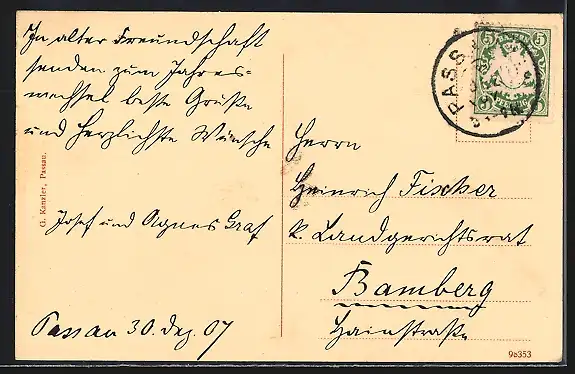 In alter Freundschaft
senden zum Jahres-
wechsel beste Grüße
und herzlichste Wünsche
Josef und Agnes Graf
Passau 30. Dez. 07
G. Kanzler, Passau.
PASS
5 5
PFENNIG
Herrn
Heinrich Fischer
k. Landgerichtsrat
Bamberg
Hainstraße
9b353